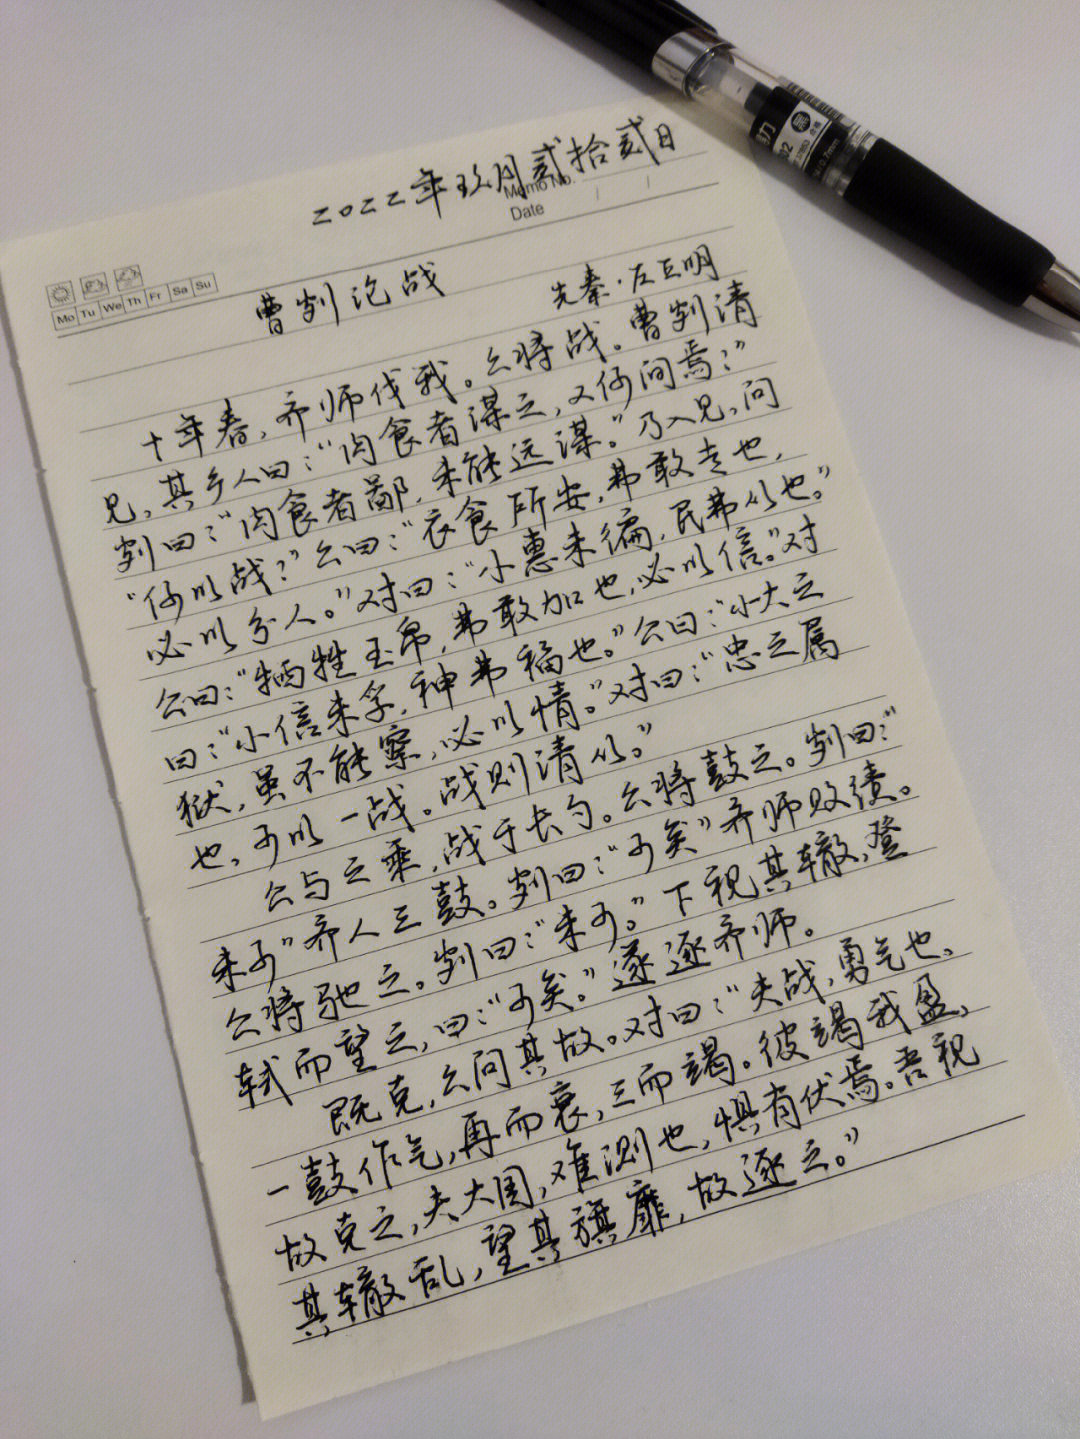 二〇二二年玖月贰拾贰日
Memo No.
Date / /
Mo Tu We Th Fr Sa Su
曹刿论战
先秦·左丘明
十年春,齐师伐我。公将战。曹刿请
见,其乡人曰:“肉食者谋之,又何间焉?”
刿曰:“肉食者鄙,未能远谋。”乃入见,问
“何以战?”公曰:“衣食所安,弗敢专也,
必以分人。”对曰:“小惠未徧,民弗从也。”
公曰:“牺牲玉帛,弗敢加也,必以信。”对
曰:“小信未孚,神弗福也。”公曰:“小大之
狱,虽不能察,必以情。”对曰:“忠之属
也,可以一战。战则请从。”
公与之乘,战于长勺。公将鼓之。刿曰:“
未可”齐人三鼓。刿曰:“可矣”齐师败绩。
公将驰之。刿曰:“未可。”下视其辙,登
轼而望之,曰:“可矣。”遂逐齐师。
既克,公问其故。对曰:“夫战,勇气也,
一鼓作气,再而衰,三而竭。彼竭我盈,
故克之,夫大国,难测也,惧有伏焉。吾视
其辙乱,望其旗靡,故逐之。”
黑
0.7mm